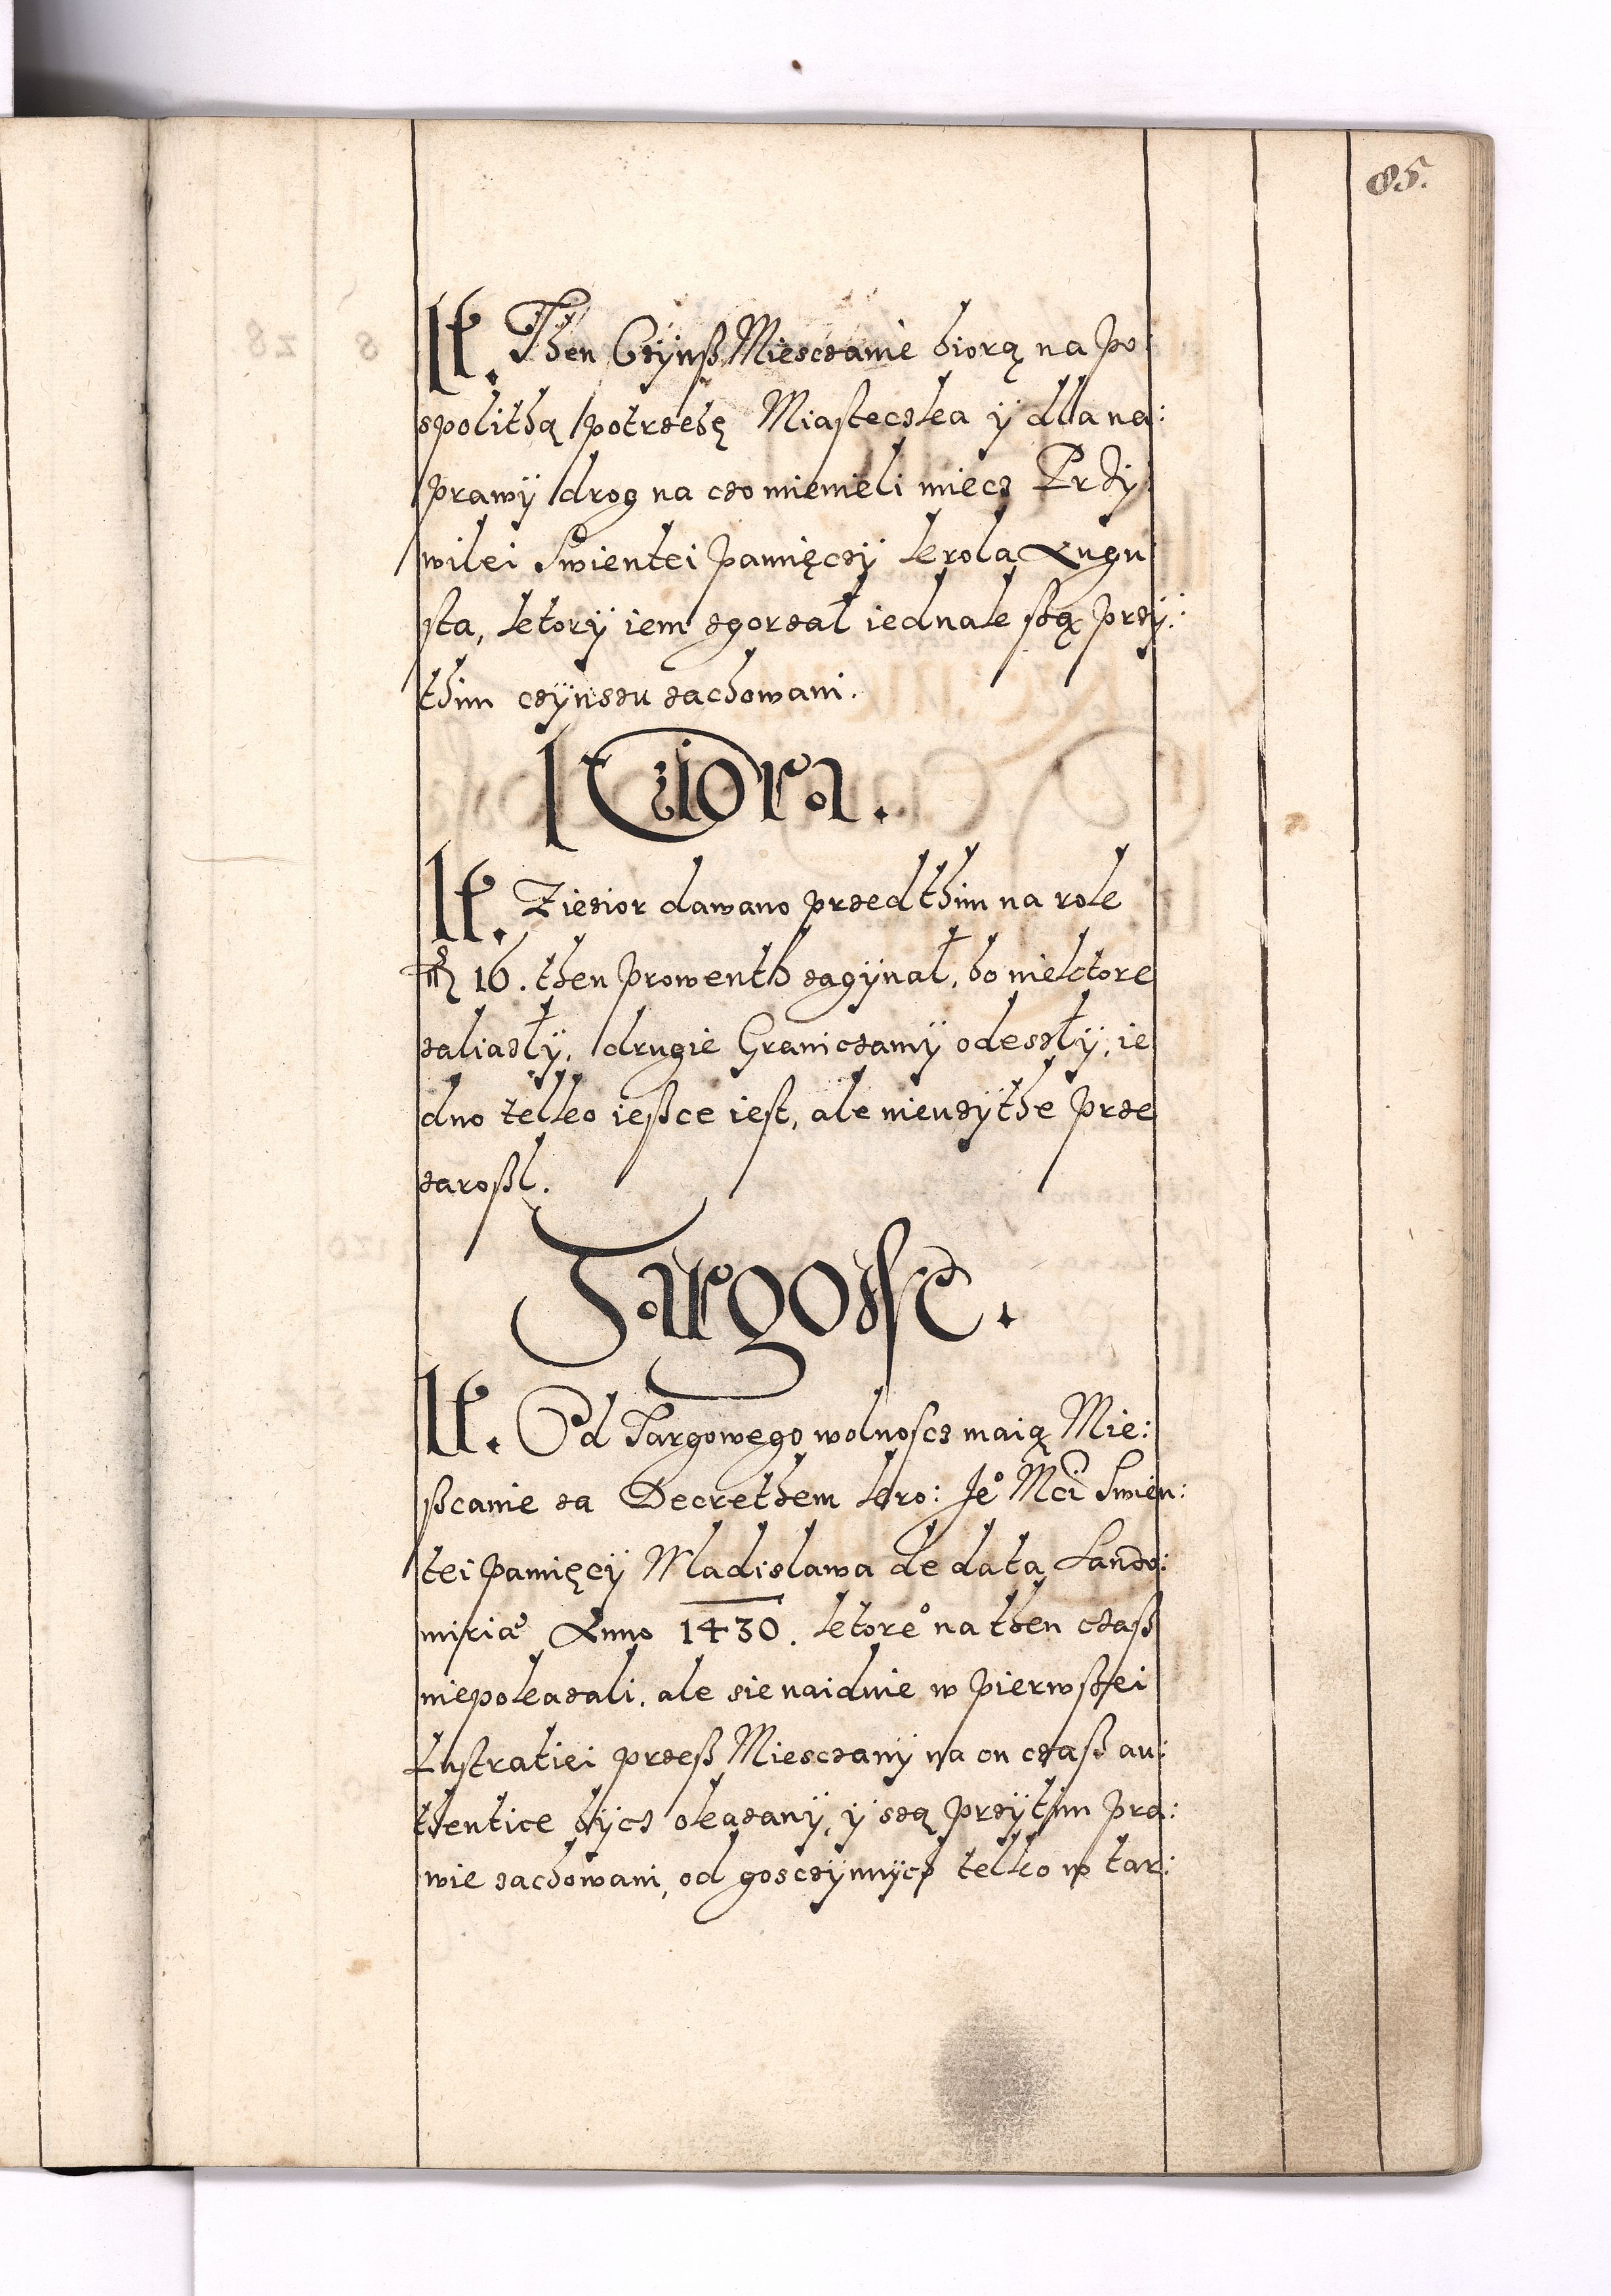 85.
It. Then Czÿnß Miesczanie biorą na po
spolithą potrzebę Miasteczka ÿ dlla na:
prawÿ drog na czo mienieli miecz Przÿ
wilei Swientei Pamięczÿ krola Augu
sta, ktorÿ iem zgorzał iednak są przÿ:
thim czÿnszu zachowani.
Ieziora.
It. Z iezior dawano przed thim na rok
fl 16. then prowenth zagÿnał, bo niektore
zaliazłÿ, drugie Graniczamÿ odeszłÿ, ie
dno telko ießce iest, ale nieuzÿthe prze
zaroßl.
Targowe.
It. Od Targowego wolnoscz maią Mie:
ßcanie za Decrethem kro: Je° Mci Swien:
tei Pamięcÿ Wladislawa de data Sando:
miriæ Anno 1430. ktore° na then czaß
niepokazali, ale sie naidnie w pierwßei
Lustratiei przeß Miesczanÿ na on czaß au:
thentice bÿcz okazanÿ, ÿ szą przÿtim pra:
wie zachowani, od gosczÿnnÿch telko w tar: